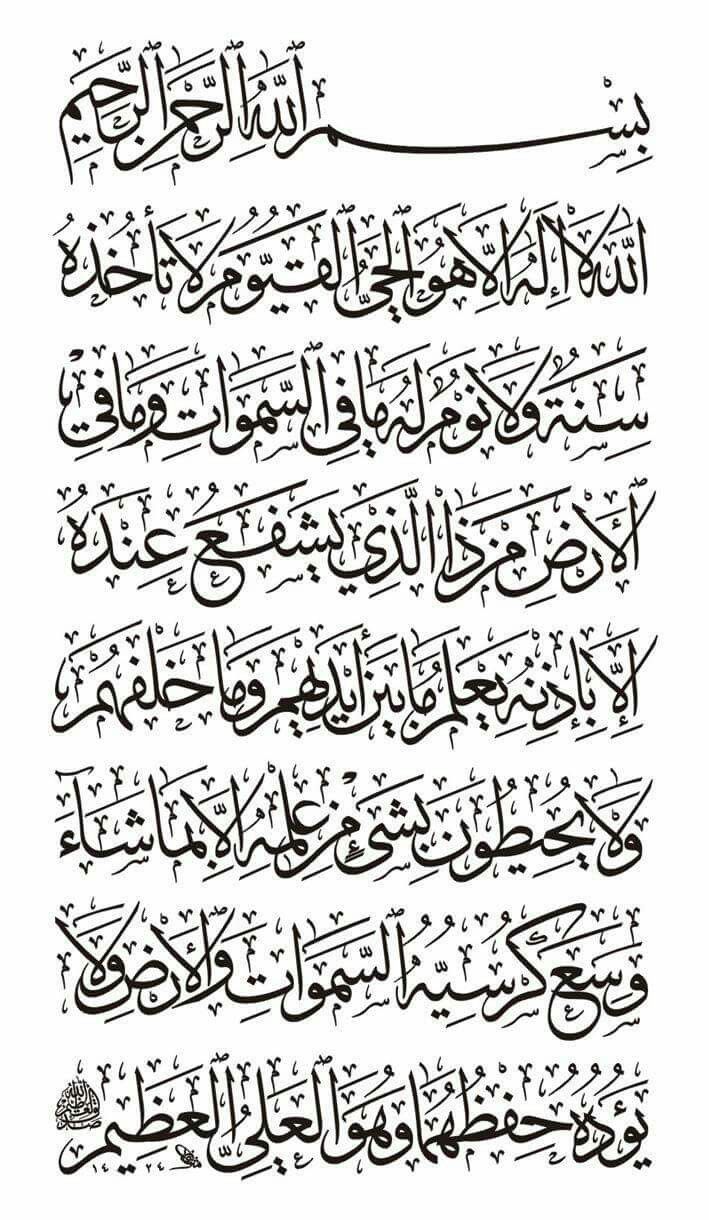 بِسْمِ اللّٰهِ الرَّحْمٰنِ الرَّحِيمِ
اَللّٰهُ لَا اِلٰهَ اِلَّا هُوَ الْحَيُّ الْقَيُّومُ لَا تَأْخُذُهُ
سِنَةٌ وَلَا نَوْمٌ لَهُ مَا فِي السَّمٰوَاتِ وَمَا فِي
الْاَرْضِ مَنْ ذَا الَّذِي يَشْفَعُ عِنْدَهُ
اِلَّا بِاِذْنِهِ يَعْلَمُ مَا بَيْنَ اَيْدِيهِمْ وَمَا خَلْفَهُمْ
وَلَا يُحِيطُونَ بِشَيْءٍ مِنْ عِلْمِهِ اِلَّا بِمَا شَاءَ
وَسِعَ كُرْسِيُّهُ السَّمٰوَاتِ وَالْاَرْضَ وَلَا
يَؤُدُهُ حِفْظُهُمَا وَهُوَ الْعَلِيُّ الْعَظِيمُ
صدق الله العظيم
١٤٢٤